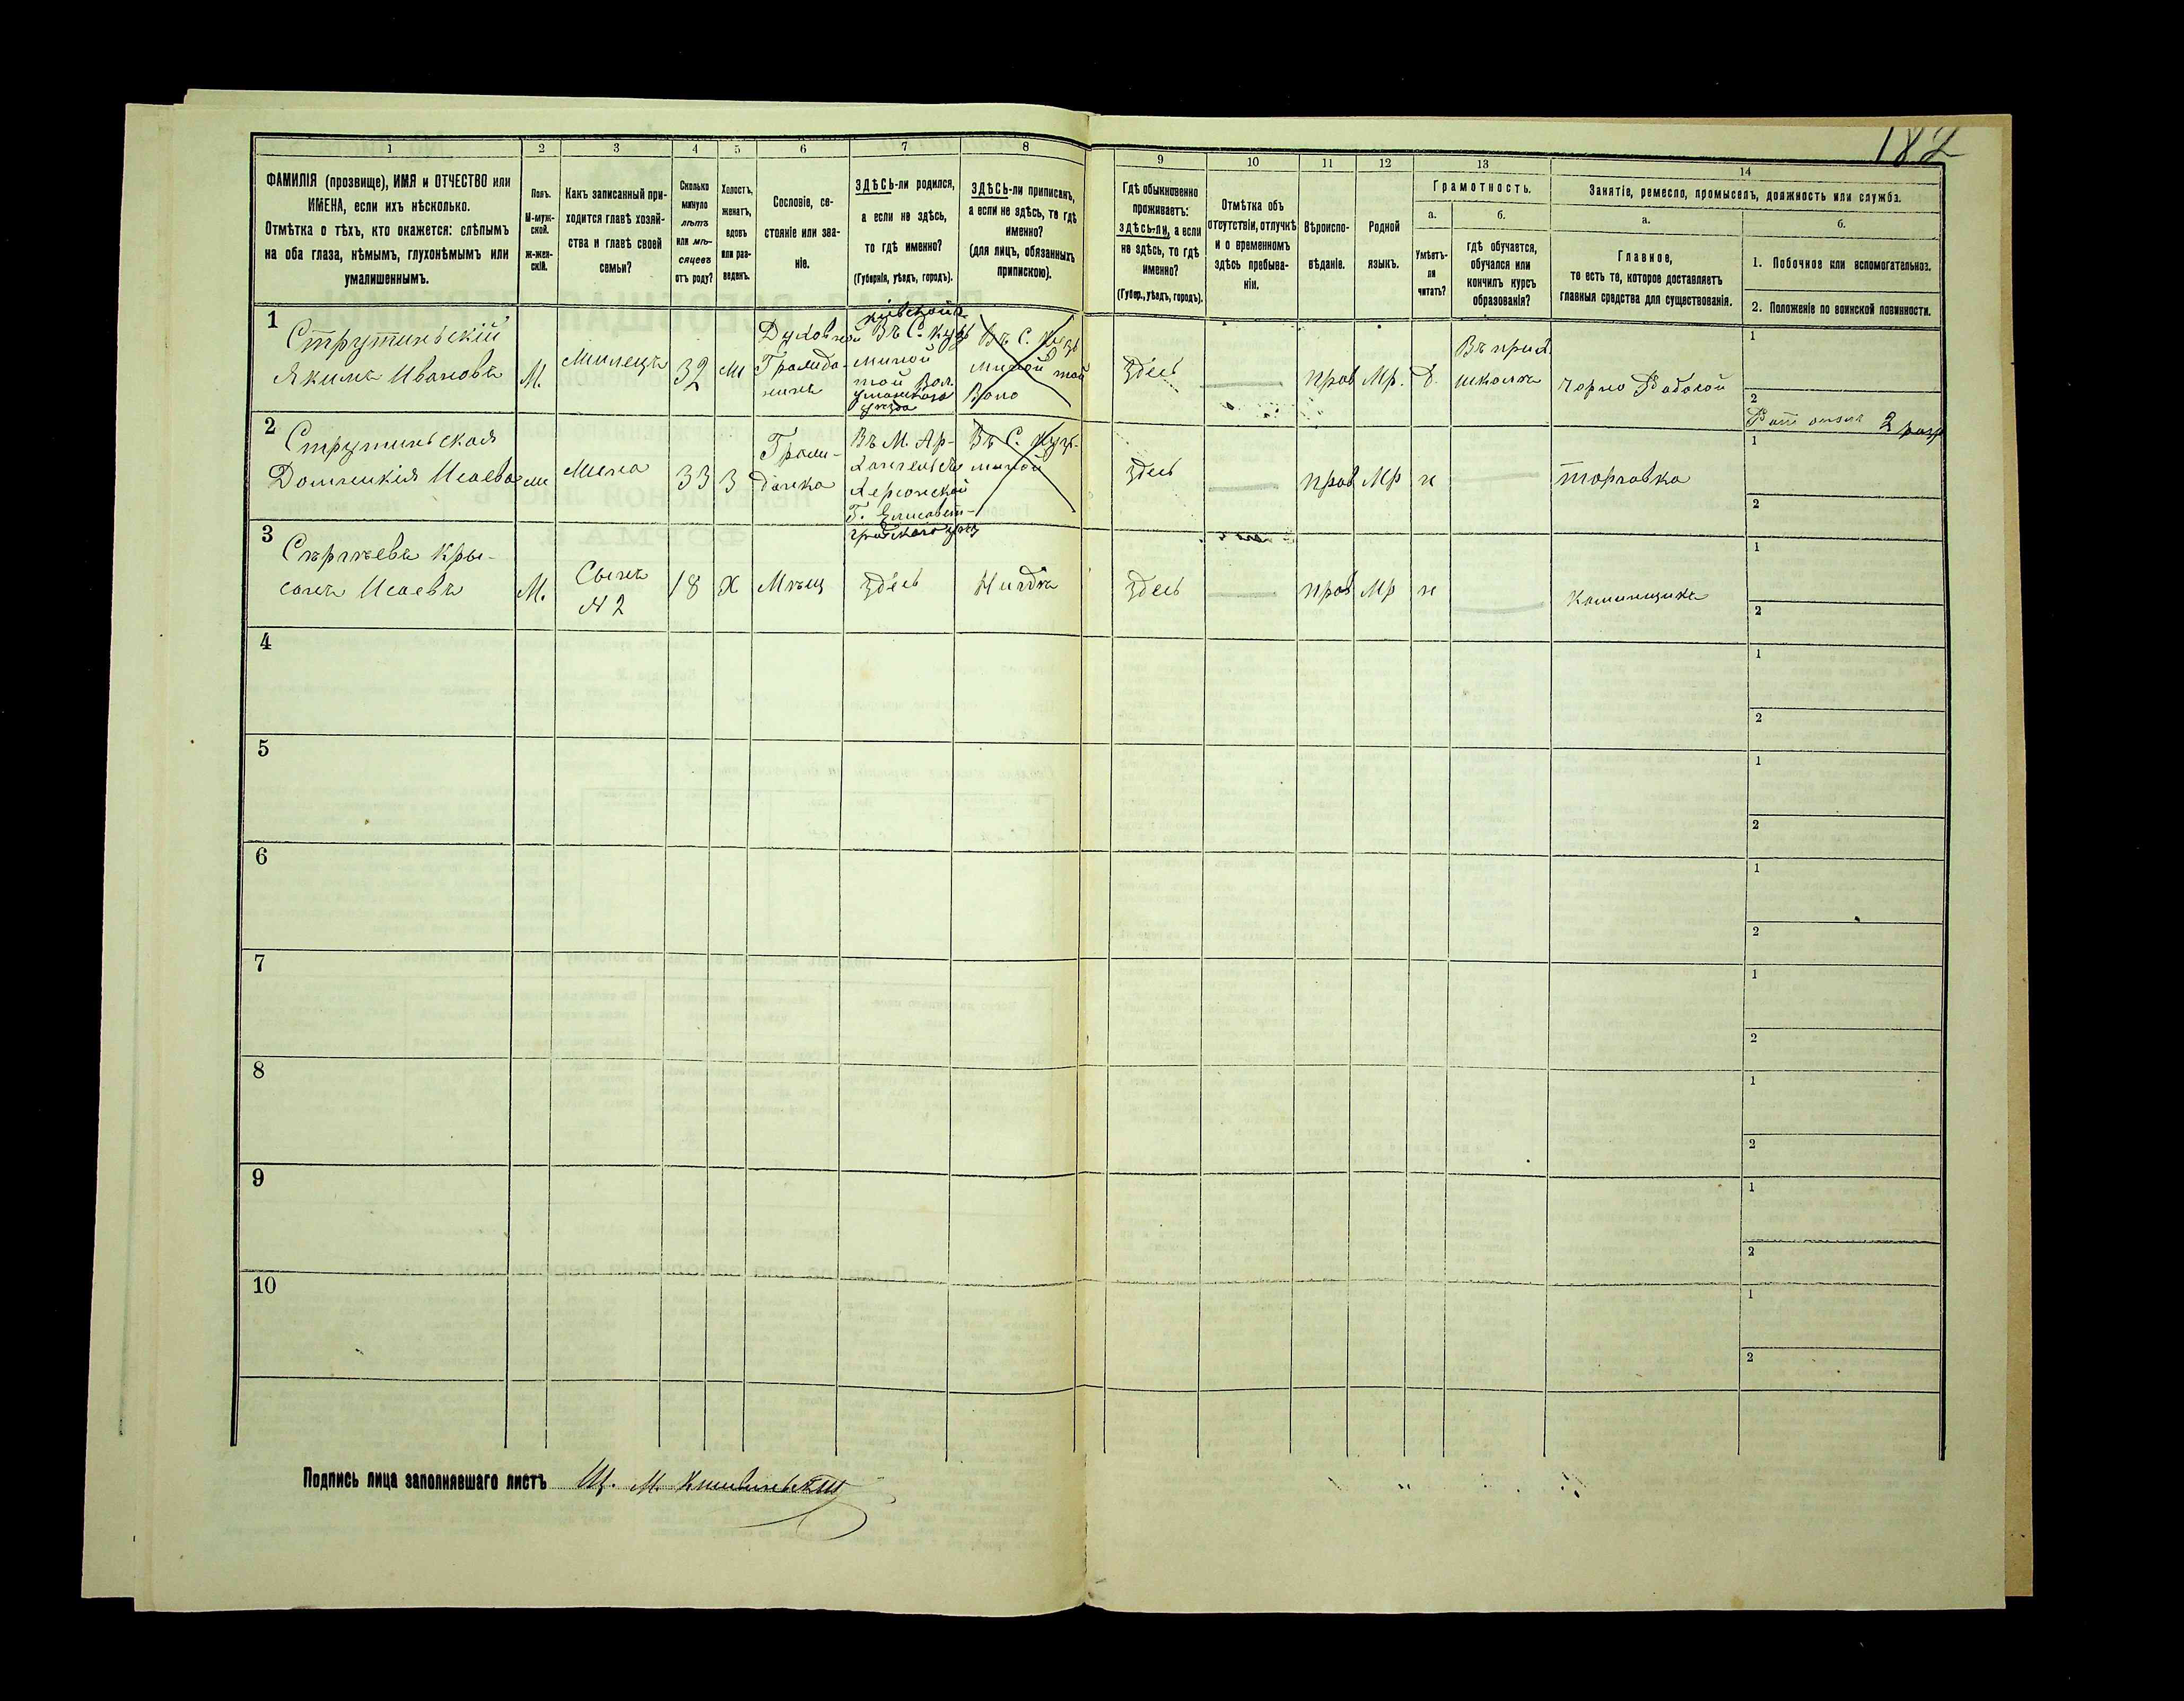 182
1 2 3 4 5 6 7 8 9 10 11 12 13 14
ФАМИЛІЯ (прозвище), ИМЯ и ОТЧЕСТВО или
ИМЕНА, если ихъ нѣсколько.
Отмѣтка о тѣхъ, кто окажется: слѣпымъ
на оба глаза, нѣмымъ, глухонѣмымъ или
умалишеннымъ.
Полъ.
М-муж-
ской.
ж-жен-
скій.
Какъ записанный при-
ходится главѣ хозяй-
ства и главѣ своей
семьи?
Сколько
минуло
лѣтъ
или мѣ-
сяцевъ
отъ роду?
Холостъ,
женатъ,
вдовъ
или раз-
веденъ.
Сословіе, со-
стояніе или зва-
ніе.
ЗДѢСЬ-ли родился,
а если не здѣсь,
то гдѣ именно?
(Губернія, уѣздъ, городъ).
ЗДѢСЬ-ли приписанъ,
а если не здѣсь, то гдѣ
именно?
(для лицъ, обязанныхъ
припискою).
Гдѣ обыкновенно
проживаетъ:
здѣсь-ли, а если
не здѣсь, то гдѣ
именно?
(Губер., уѣздъ, городъ).
Отмѣтка объ
отсутствіи, отлучкѣ
и о временномъ
здѣсь пребыва-
ніи.
Вѣроиспо-
вѣданіе.
Родной
языкъ.
Грамотность.
а.
Умѣетъ-
ли
читать?
б.
гдѣ обучается,
обучался или
кончилъ курсъ
образованія?
Занятіе, ремесло, промыселъ, должность или служба.
а.
Главное,
то есть то, которое доставляетъ
главныя средства для существованія.
б.
1. Побочное или вспомогательное.
2. Положеніе по воинской повинности.
1
Струтиньскій
Якимъ Ивановъ
М.
Жилецъ
32
Духовной
Гражда-
нинъ
Въ С. Кузь
миной
Вол.
уманскаго
уезда
Въ С.
здесь
прав
Мр.
д.
Въ
школѣ
Чорно Рабочой
1
2
2 разр
2
Струтиньская
33
З
Гражи-
данка
Въ М. Ар-
Херсонской
Г. Елисавет-
градского
Въ С.
здесь
прав
Мр
н
торговка
1
2
3
Сѣргѣевъ
Исаевъ
М.
Сынъ
№ 2
18
Х
Мѣщ
здесь
здесь
прав
Мр
н
1
2
4
1
2
5
1
2
6
1
2
7
1
2
8
1
2
9
1
2
10
1
2
Подпись лица заполнявшаго листъ